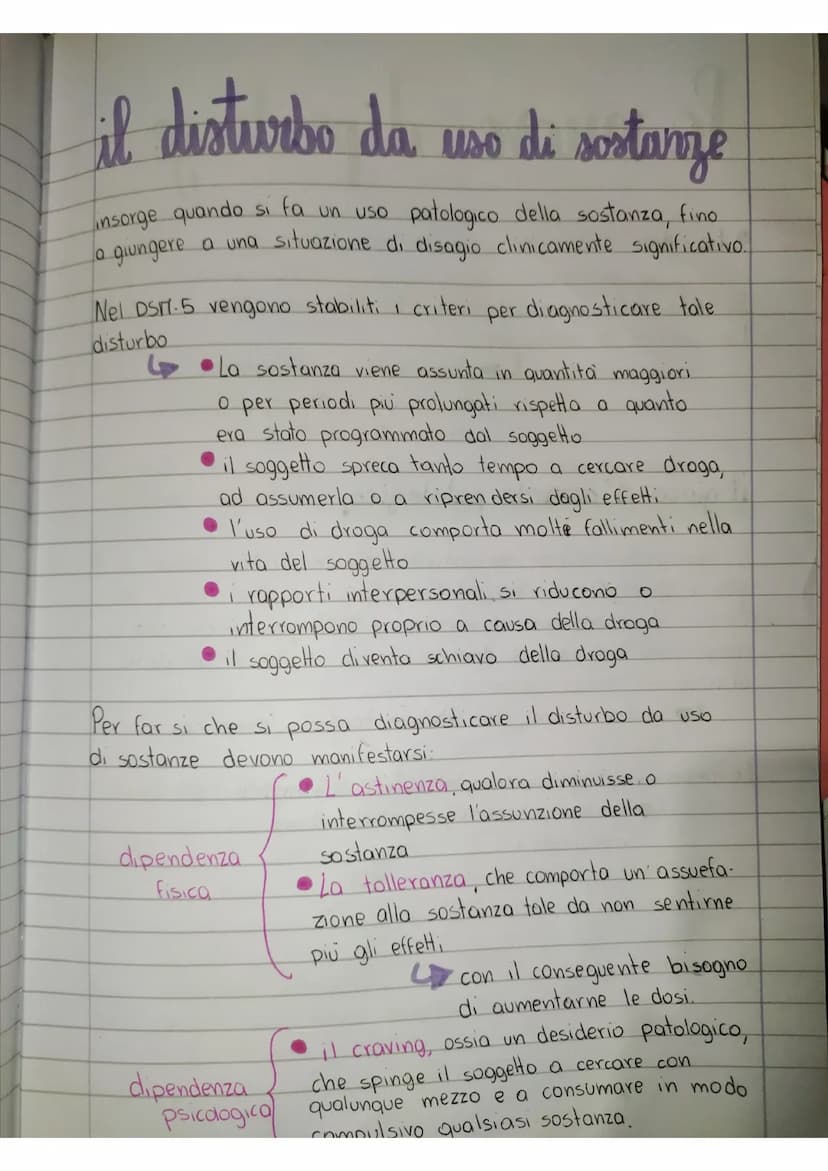 il disturbo da uso di sostanze
insorge quando si fa un uso patologico della sostanza, fino
a giungere a una situazione di disagio clinicamente significativo.
Nel DSM.5 vengono stabiliti i criteri per diagnosticare tale
disturbo
↳ • La sostanza viene assunta in quantità maggiori
o per periodi più prolungati rispetto a quanto
era stato programmato dal soggetto
• il soggetto spreca tanto tempo a cercare droga,
ad assumerla o a riprendersi dagli effetti
• l'uso di droga comporta molte fallimenti nella
vita del soggetto
• i rapporti interpersonali si riducono o
interrompono proprio a causa della droga
• il soggetto diventa schiavo della droga
Per far si che si possa diagnosticare il disturbo da uso
di sostanze devono manifestarsi:
dipendenza
fisica
• L'astinenza, qualora diminuisse o
interrompesse l'assunzione della
sostanza
• La tolleranza, che comporta un'assuefa-
zione alla sostanza tale da non sentirne
più gli effetti
↳ con il conseguente bisogno
di aumentarne le dosi.
dipendenza
psicologica
• il craving, ossia un desiderio patologico,
che spinge il soggetto a cercare con
qualunque mezzo e a consumare in modo
compulsivo qualsiasi sostanza.